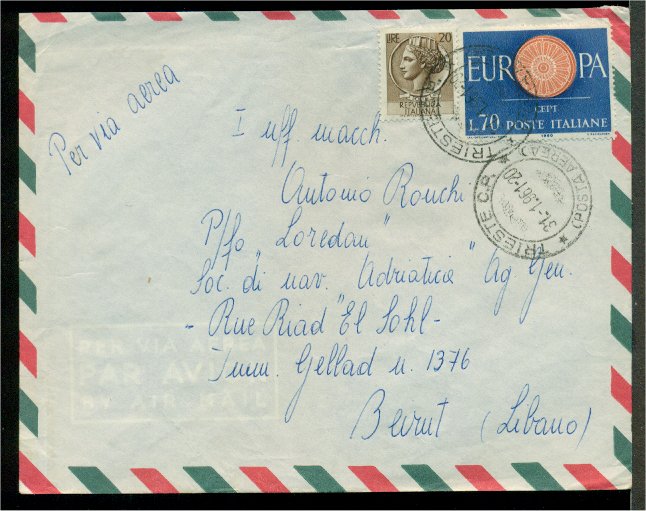 LIRE 20
REPVBBLICA
ITALIANA
EUROPA
CEPT
L.70 POSTE ITALIANE
1960
TRIESTE
TRIESTE C.P.
(POSTA AEREA)
31-1-961-20
Per via aerea
I uff. macch.
Antonio Ronchi
P/fo "Loredan"
Soc. di nav. "Adriatica" Ag. Gen.
- Rue Riad "El Sohl -
Imm. Gellad n. 1376
Beirut (Libano)
PER VIA AEREA
PAR AVION
BY AIR MAIL